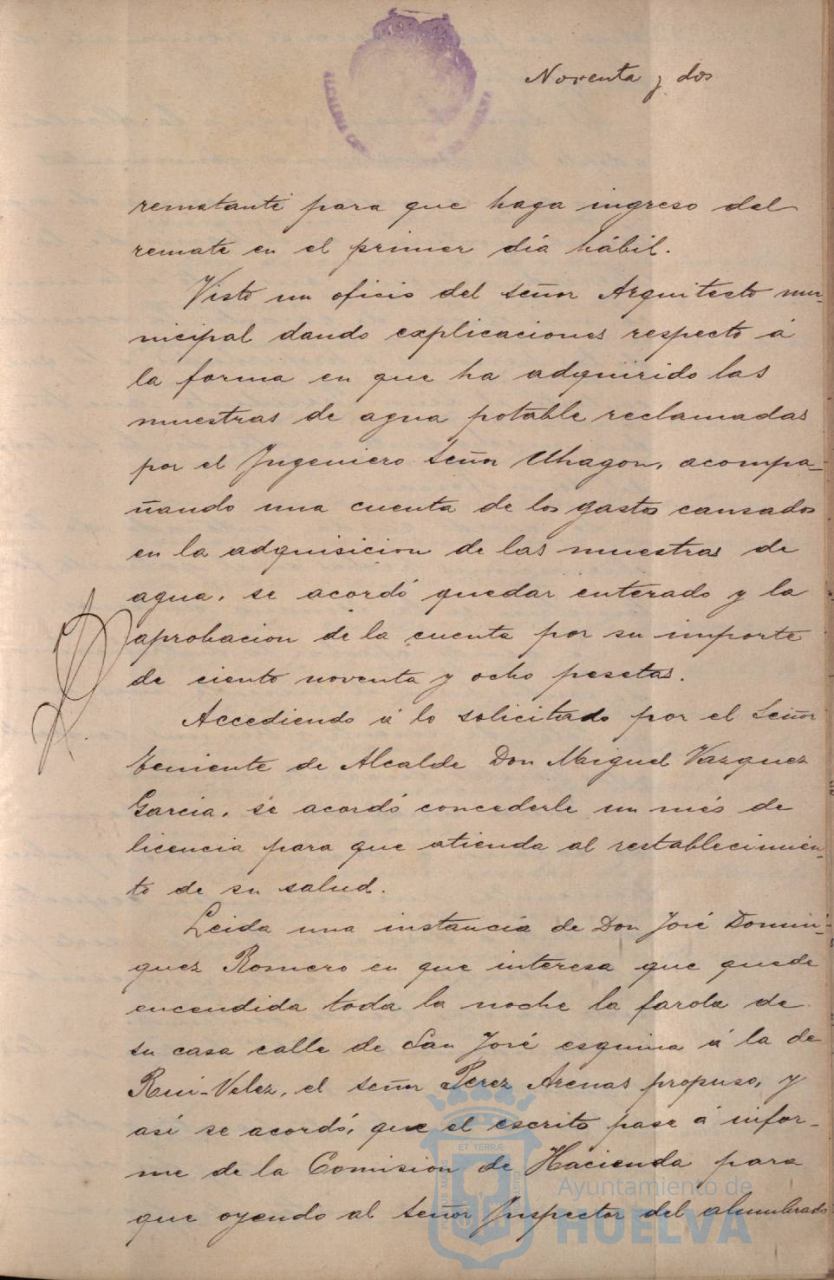 Noventa y dos
remetante para que haga ingreso del
remate en el primer día hábil.
Visto un oficio del señor Arquitecto mu-
nicipal dando explicaciones respecto á
la forma en que ha adquirido las
muestras de agua potable reclamadas
por el Ingeniero Señor Uhagon, acompa-
ñando una cuenta de los gastos causados
en la adquisicion de las muestras de
agua, se acordó quedar enterado y la
aprobacion de la cuenta por su importe
de ciento noventa y ocho pesetas.
Accediendo á lo solicitado por el Señor
Teniente de Alcalde Don Miguel Vazquez
Garcia, se acordó concederle un més de
licencia para que atienda al restablecimien-
to de su salud.
Leida una instancia de Don José Domin-
guez Romero en que interesa que quede
encendida toda la noche la farola de
su casa calle de San José esquina á la de
Rui-Velez, el señor Perez Arenas propuso, y
así se acordó, que el escrito pase á infor-
me de la Comision de Hacienda para
que oyendo al señor Inspector del alumbrado
ET TERRÆ
Ayuntamiento de
HUELVA